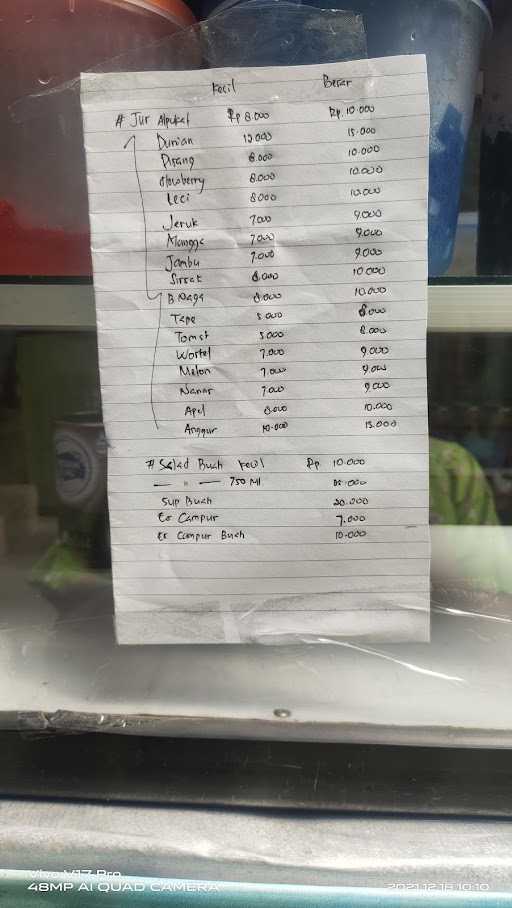 Kecil Besar
# Jus Alpukat Rp 8.000 Rp. 10.000
Durian 12.000 15.000
Pisang 8.000 10.000
Strowberry 8.000 10.000
Leci 8000 10.000
Jeruk 7.000 9.000
Mangga 7.000 9.000
Jambu 7.000 9.000
Sirsat 8.000 10.000
B Naga 8.000 10.000
Tape 5.000 8.000
Tomat 5.000 8.000
Wortel 7.000 9.000
Melon 7.000 9.000
Nanas 7.000 9.000
Apel 8.000 10.000
Anggur 10.000 15.000
# Salad Buah Kecil Rp. 10.000
— " — 750 Ml
Sup Buah
Es Campur 7.000
Es Campur Buah 10.000
vivo V17 Pro
48MP AI QUAD CAMERA 2021.12.18 10:10